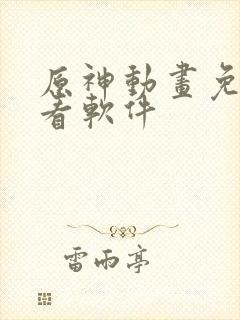 原神動畫免
看軟件
雷雨亭